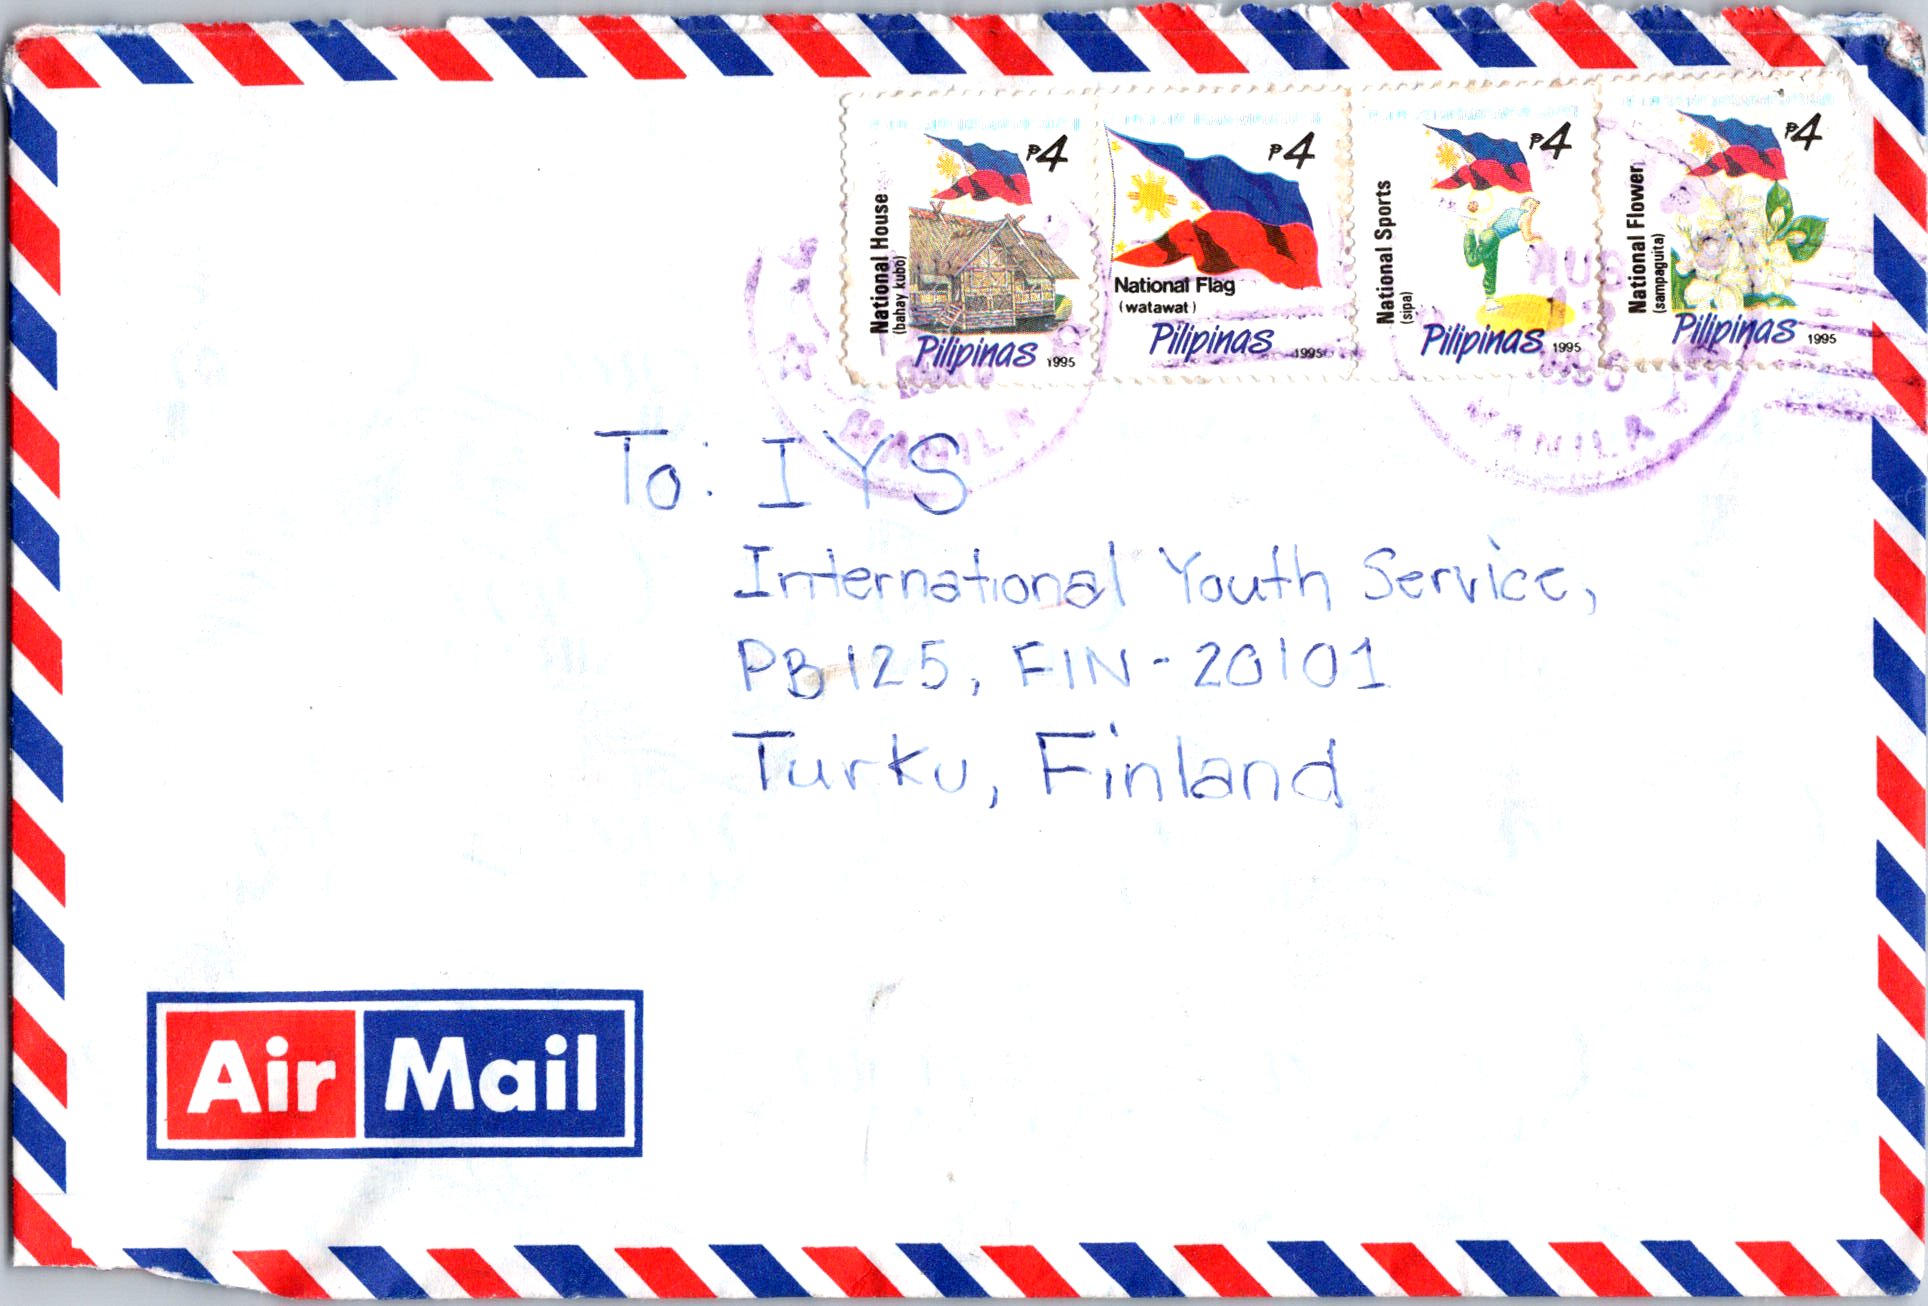 ₱4
National House
(bahay kubo)
Pilipinas 1995
₱4
National Flag
(watawat)
Pilipinas 1995
₱4
National Sports
(sipa)
Pilipinas 1995
₱4
National Flower
(sampaguita)
Pilipinas 1995
MANILA
MANILA
To: IYS
International Youth Service,
PB 125, FIN - 20101
Turku, Finland
Air Mail